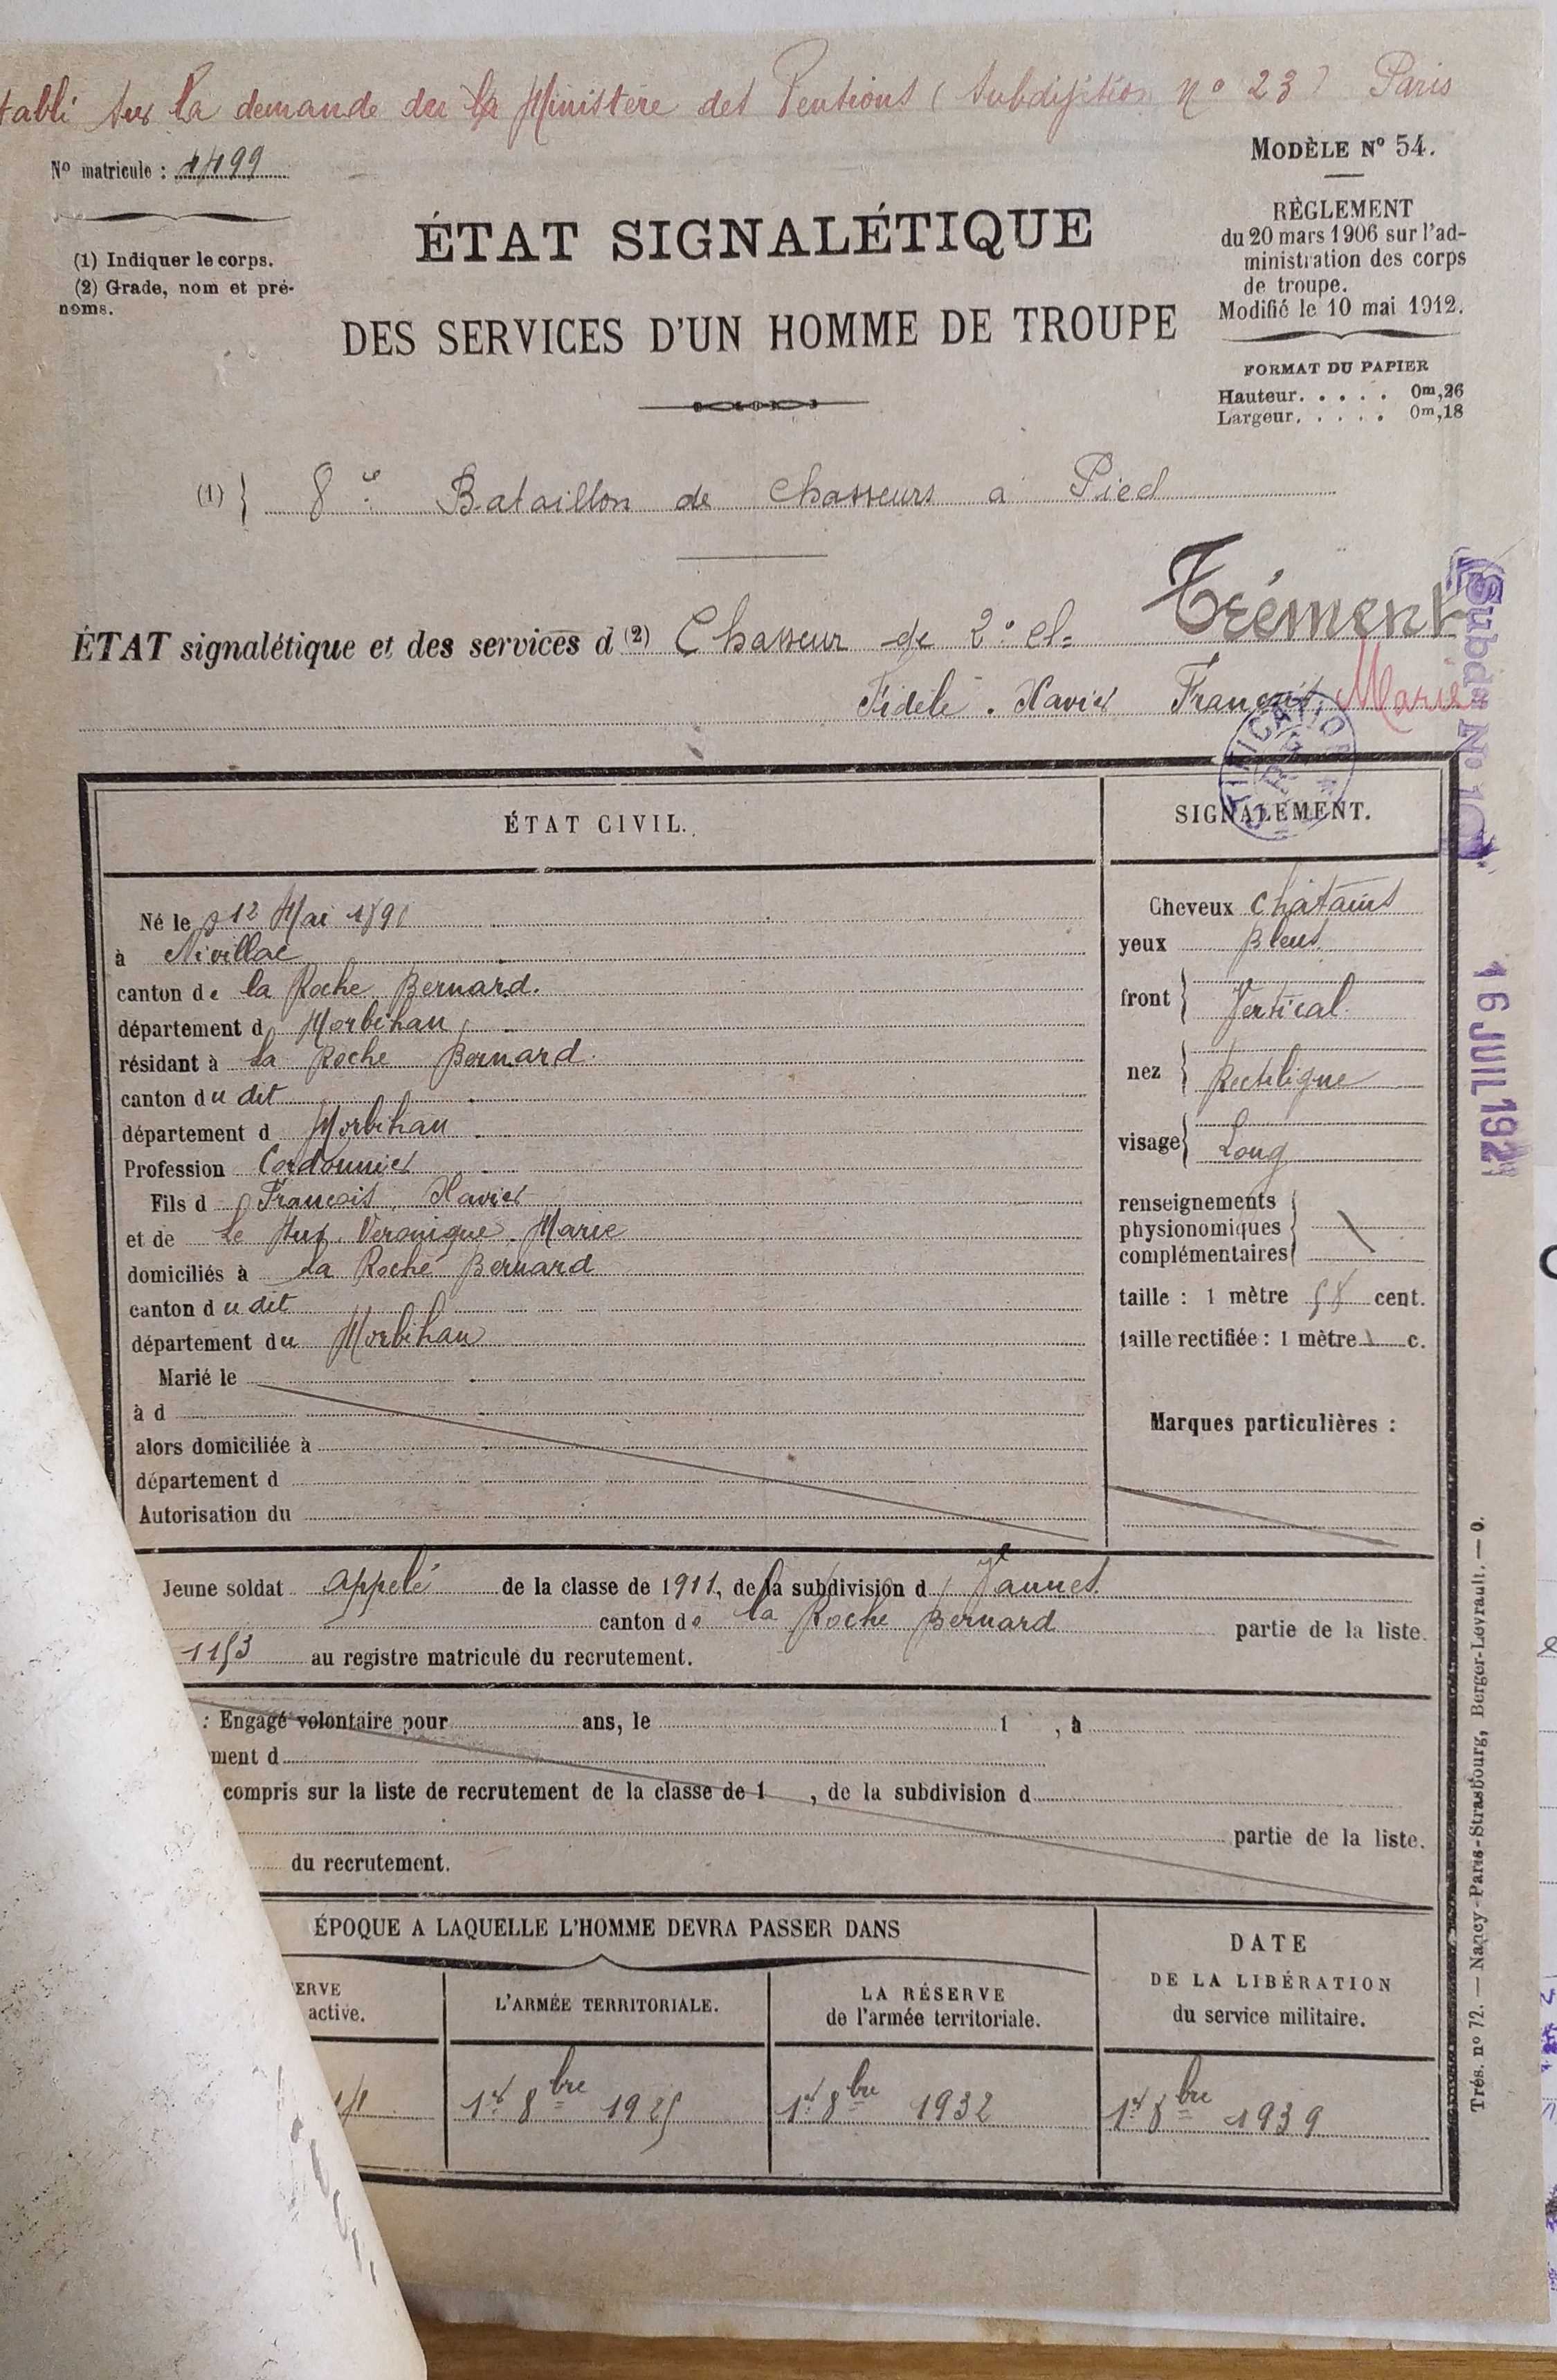 tabli sur la demande du la Ministère des Pensions (Subdivision n° 23) Paris
N° matricule : 4499
(1) Indiquer le corps.
(2) Grade, nom et pré-
noms.
MODÈLE N° 54.
RÈGLEMENT
du 20 mars 1906 sur l'ad-
ministration des corps
de troupe.
Modifié le 10 mai 1912.
FORMAT DU PAPIER
Hauteur. . . . . 0m,26
Largeur. . . . . 0m,18
ÉTAT SIGNALÉTIQUE
DES SERVICES D'UN HOMME DE TROUPE
(1) } 8e Bataillon de Chasseurs a Pied
ÉTAT signalétique et des services d (2) Chasseur de 2e cl. Trément
Fidèle. Xavier François Marie
Subdon N° 10
16 JUIL 192
ÉTAT CIVIL.
Né le 12 Mai 1891
à Nivillac
canton de la Roche Bernard.
département d Morbihan
résidant à La Roche Bernard.
canton du dit
département d Morbihan
Profession Cordonnier
Fils d François, Xavier
et de Le Veronique Marie
domiciliés à La Roche Bernard
canton du dit
département du Morbihan
Marié le
à d
alors domiciliée à
département d
Autorisation du
SIGNALEMENT.
Cheveux Châtains
yeux Bleus
front } Vertical.
nez } Rectiligne
visage } Long
renseignements
physionomiques
complémentaires
taille : 1 mètre 58 cent.
taille rectifiée : 1 mètre c.
Marques particulières :
Jeune soldat appelé de la classe de 1911, de la subdivision d Vannes.
canton de la Roche Bernard partie de la liste.
1153 au registre matricule du recrutement.
: Engagé volontaire pour ans, le 1 , à
ment d
compris sur la liste de recrutement de la classe de 1 , de la subdivision d
partie de la liste.
du recrutement.
ÉPOQUE A LAQUELLE L'HOMME DEVRA PASSER DANS
ERVE
active.
L'ARMÉE TERRITORIALE.
LA RÉSERVE
de l'armée territoriale.
DATE
DE LA LIBÉRATION
du service militaire.
1er 8bre 1925
1er 8bre 1932
1er 8bre 1939
Trés. n° 72. — Nancy-Paris-Strasbourg, Berger-Levrault. — O.